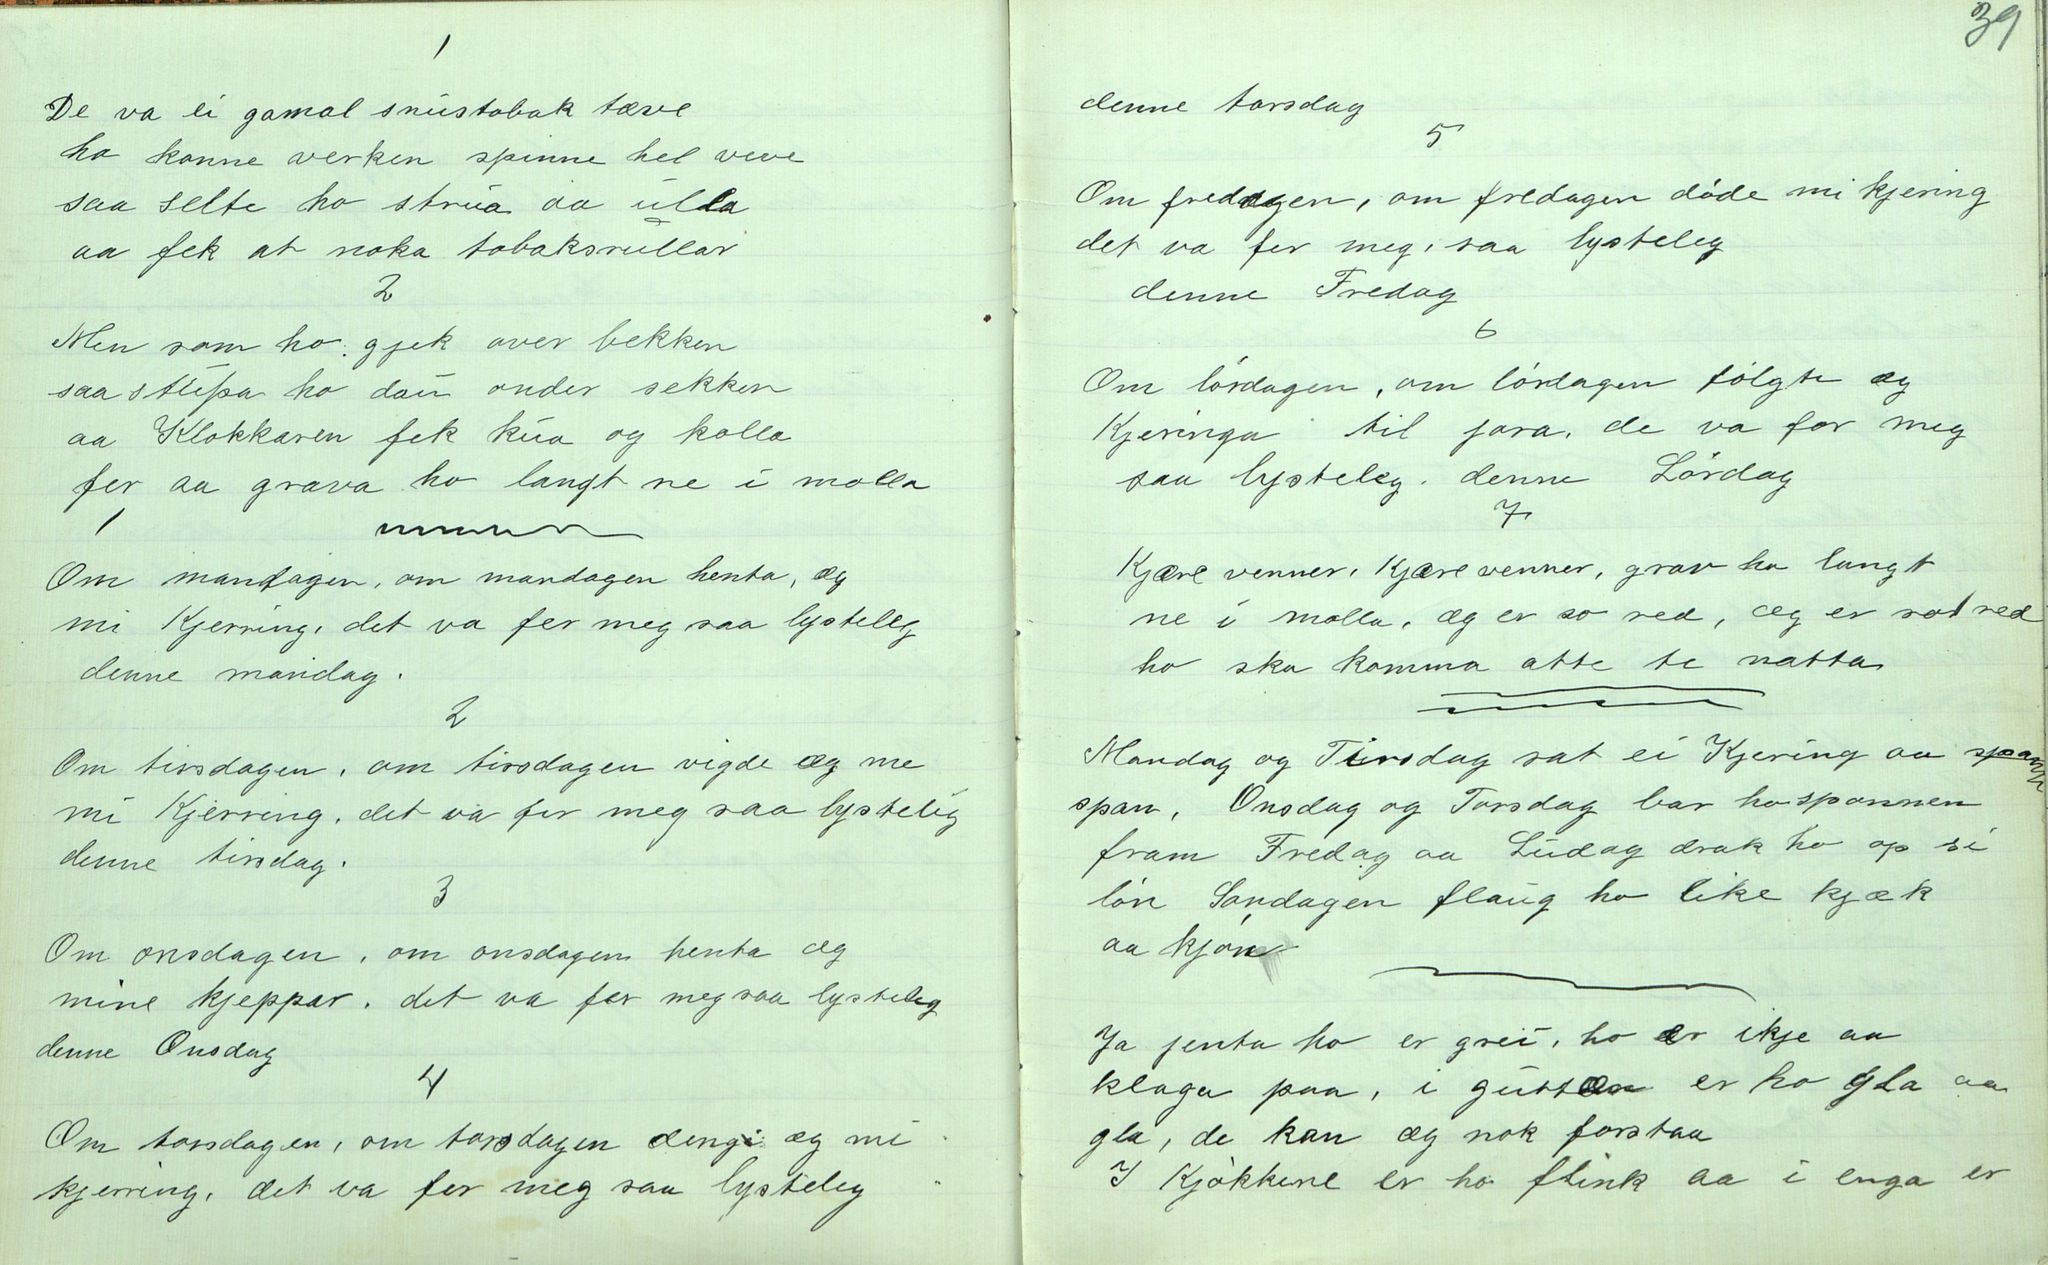 1
De va ei gamal snustobak tæve
ho konne verken spinne hel veve
saa selte ho strua aa ulla
aa fek at noka tobaksrullar
2
Men som ho gjek over bekken
saa stupa ho dau onder sekken
aa Klokkaren fek kua og kolla
fer aa grava ho langt ne i molla
1
Om mandagen, om mandagen henta, æg
mi Kjerring, det va fer meg saa lysteleg
denne mandag.
2
Om tirsdagen, om tirsdagen vigde æg me
mi Kjerring, det va fer meg saa lysteleg
denne tirsdag.
3
Om onsdagen, om onsdagen henta æg
mine kjeppar, det va fer meg saa lysteleg
denne Onsdag
4
Om torsdagen, om torsdagen dengi æg mi
kjerring, det va fer meg saa lysteleg
39
denne torsdag
5
Om fredagen, om fredagen døde mi kjering
det va fer meg, saa lysteleg
denne Fredag
6
Om lórdagen, om lórdagen fólgte æg
Kjeringa til jora, de va for meg
saa lysteleg, denne Lórdag
7
Kjære venner, Kjære venner, grav ho langt
ne i molla, æg er so red, æg er so red
ho ska komma atte te natta
Mandag og Tirsdag sat ei Kjering aa
span, Onsdag og Torsdag bar ho spannen
fram Fredag aa Ludag drak ho op si
lón Sondagen flaug ho like kjæk
aa kjón
Ja jenta ho er grei, ho er ikje aa
klaga paa, i gutten er ho gla aa
gla, de kan æg nok forstaa
I Kjókkene er ho flink aa i enga er